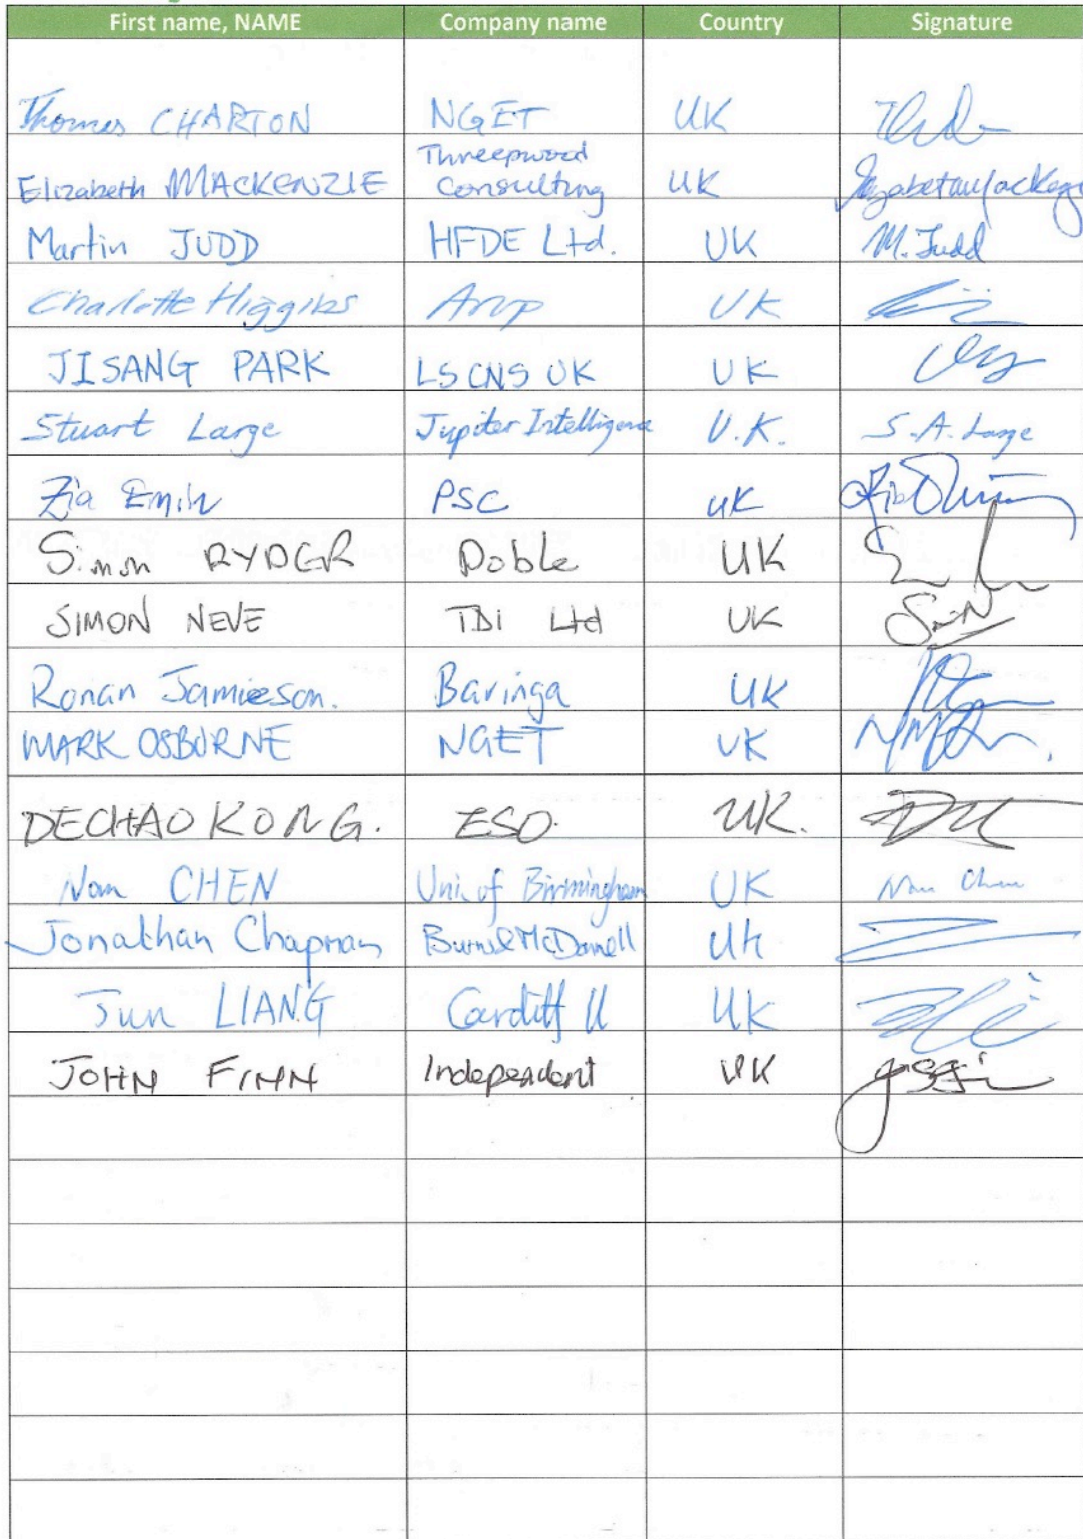 First name, NAME Company name Country Signature
Thomas CHARTON NGET UK
Elizabeth MACKENZIE Threepwood Consulting UK
Martin JUDD HFDE Ltd. UK M. Judd
Charlotte Higgins Arup UK
JISANG PARK LS CNS UK UK
Stuart Large Jupiter Intelligence U.K. S.A. Large
Zia Emin PSC UK
Simon RYDER Doble UK
SIMON NEVE TBI Ltd UK
Ronan Jamieson. Baringa UK
MARK OSBORNE NGET UK
DECHAO KONG. ESO. UK.
Nan CHEN Uni. of Birmingham UK Nan Chen
Jonathan Chapman Burns & McDonnell UK
Jun LIANG Cardiff U UK
JOHN FINN Independent UK